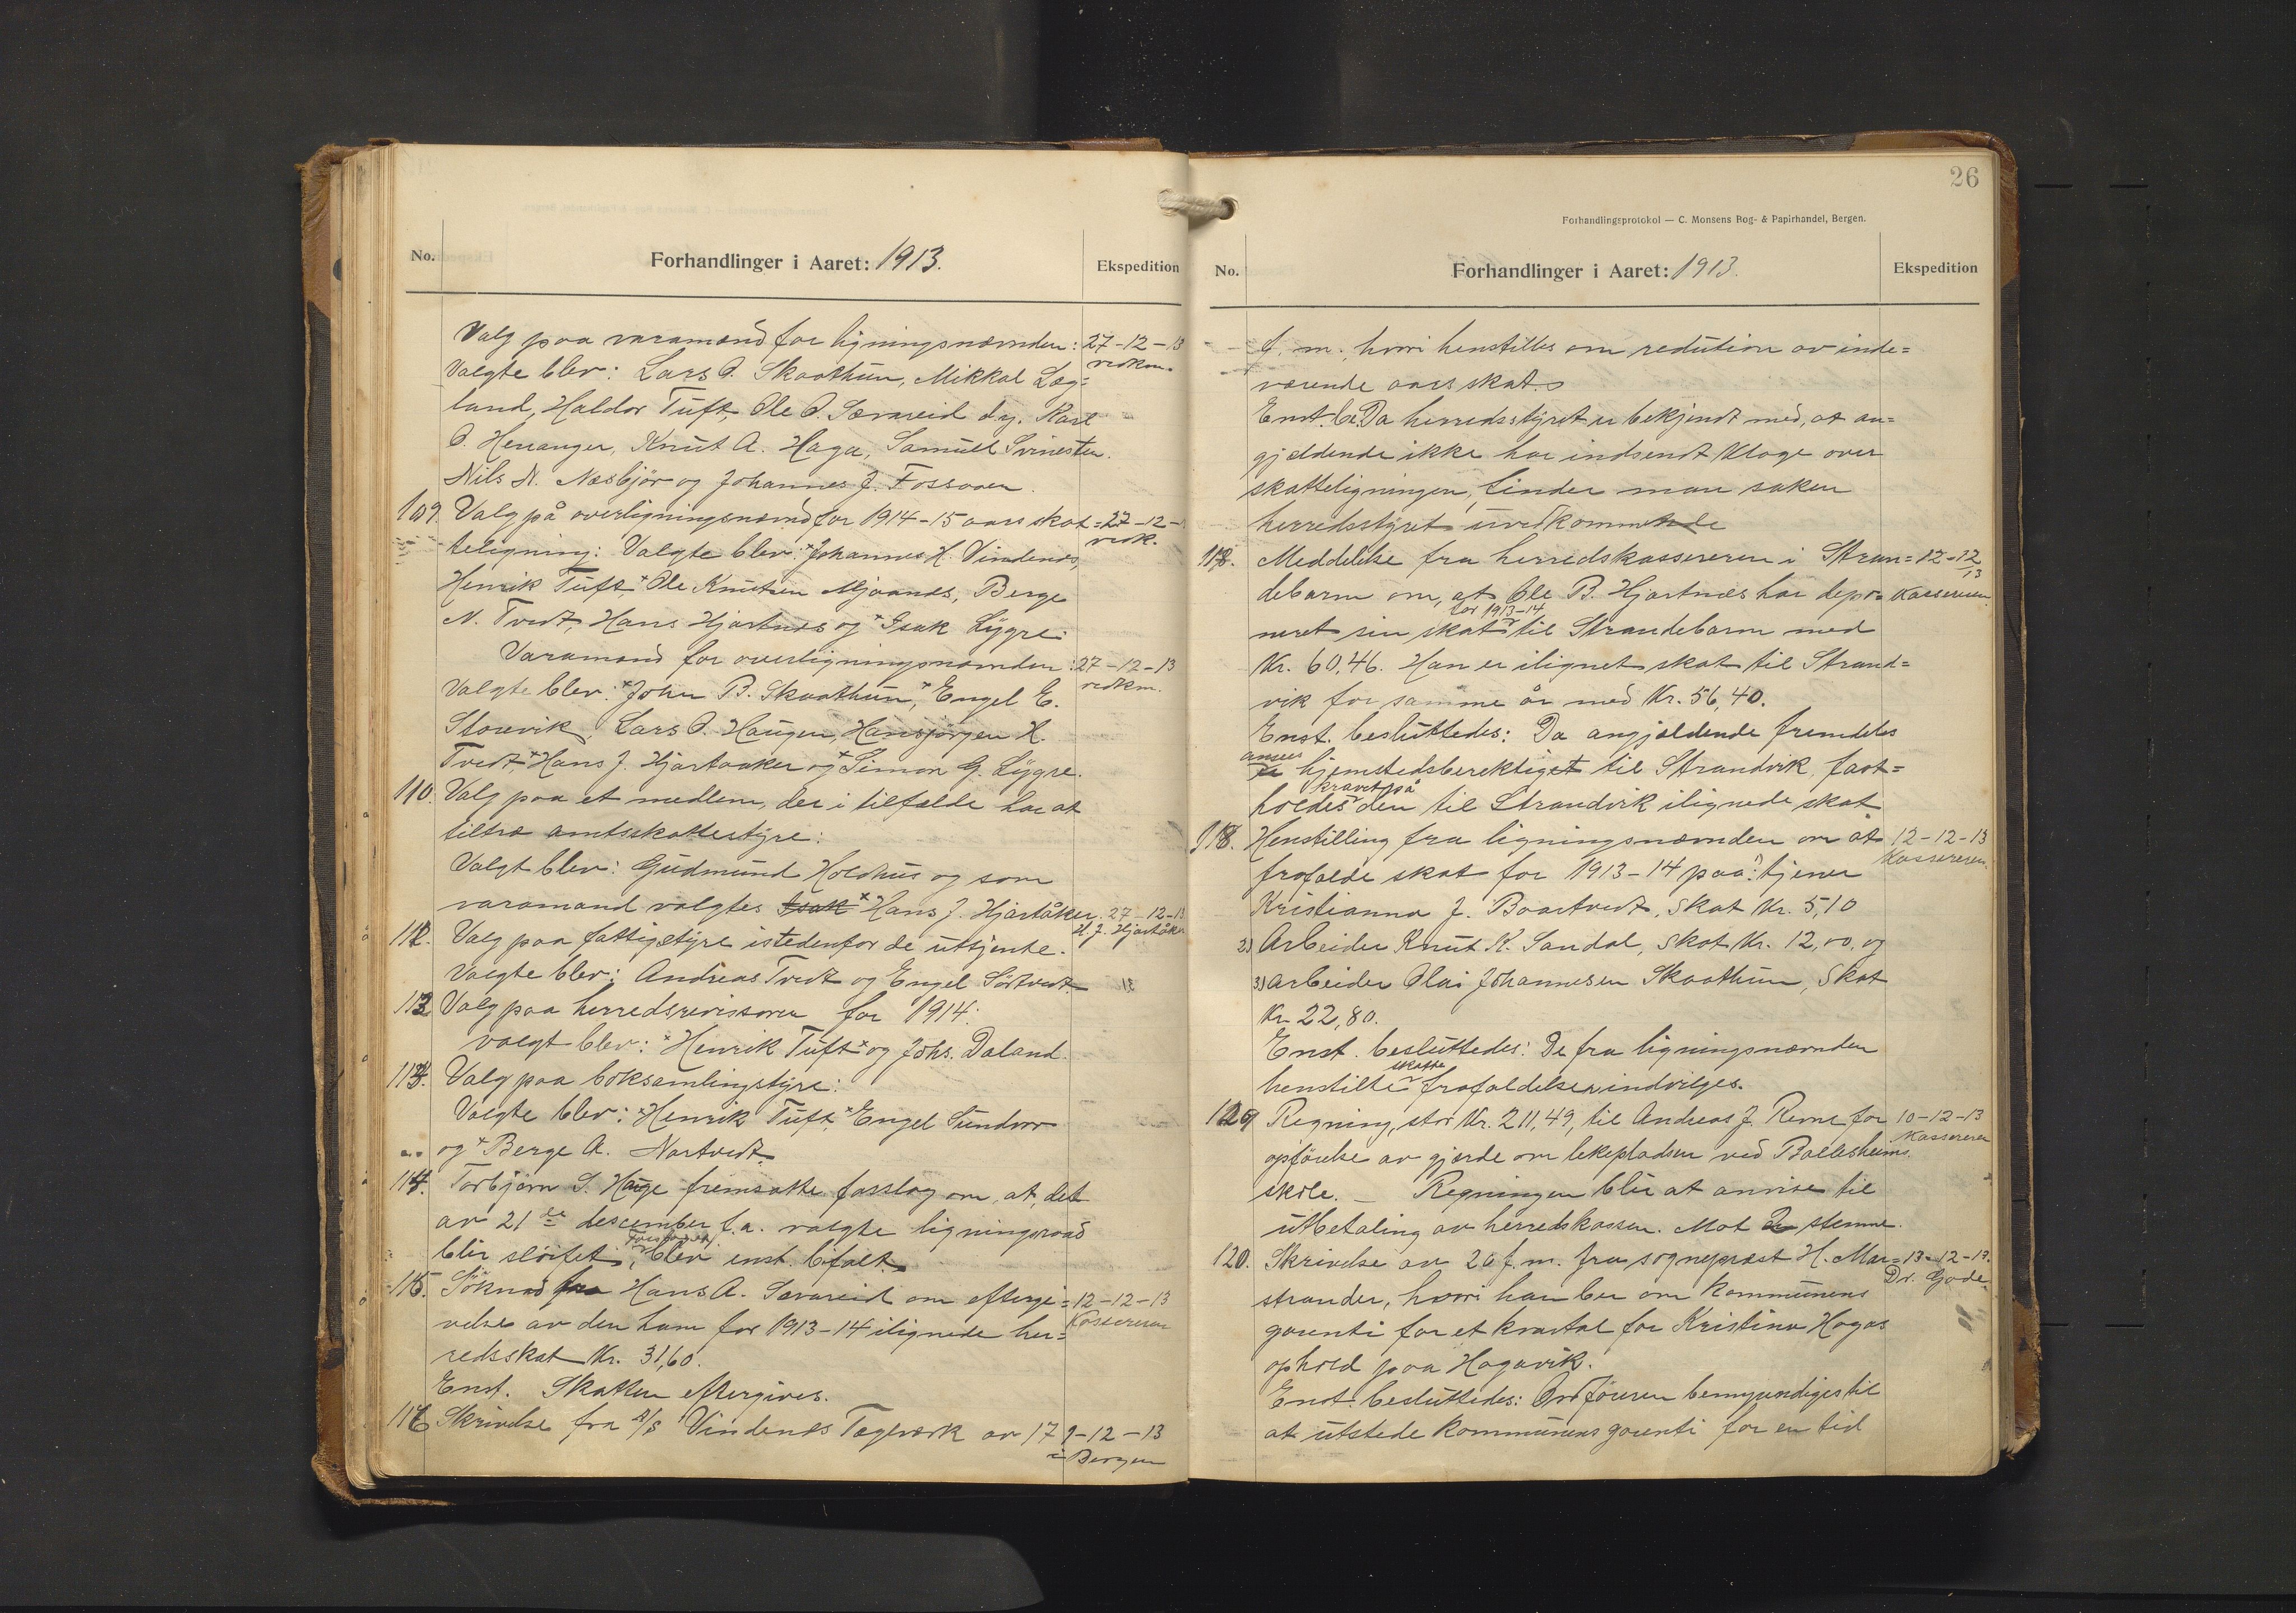 No.
Forhandlinger i Aaret: 1913.
Ekspedition
Valg paa varamænd for ligningsnævnden: 27-12-13
Valgte blev: Lars O. Skaathun, Mikkal Læg= vedkm.
land, Haldor Tuft, Ole O. Sævareid d.y. Karl
O. Henanger, Knut A. Haga, Samuel Svinesten.
Nils N. Næsbjør og Johannes J. Fossaaen.
109. Valg på overligningsnævnd for 1914-15 aars skat= 27-12-
teligning: Valgte blev: Johannes H. Vindenes, vedk.
Henrik Tuft, Ole Knutsen Mjaanes, Berge
N. Tvedt, Hans Hjartnes og Isak Lygre.
Varamænd for overligningsnævnden: 27-12-13
Valgte blev: John B. Skaathun, Engel E. vedkm.
Storvik, Lars O. Haugen, Hansjørgen H.
Tvedt, Hans J. Hjartaaker og Simon G. Lygre.
110. Valg paa et medlem, der i tilfælde har at
tiltræ amtsskattestyre:
Valgt blev: Gudmund Holdhus og som
varamand valgtes Isak Hans J. Hjartåker. 27-12-13
111. Valg paa fattigstyre istedenfor de uttjente. H. J. Hjartåker
Valgte blev: Andreas Tvedt og Engel Sørtvedt.
112. Valg paa herredsrevisorer for 1914:
valgt blev: Henrik Tuft og Johs. Daland.
113. Valg paa boksamlingstyre:
Valgte blev: Henrik Tuft, Engel Sundvor
og Berge A. Nortvedt.
114. Torbjørn S. Hauge fremsatte forslag om, at det
av 21de desember f.a. valgte ligningsraad
Forslaget
blir sløifet, blev enst. bifalt.
115. Søknad fra Hans A. Sævareid om eftergi= 12-12-13
velse av den ham for 1913-14 ilignede her= Kassereren
redsskat Kr. 31,60.
Enst. Skatten eftergives.
116 Skrivelse fra A/S Vindenes Tægeverk av 17 9-12-13
i Bergen
26
Forhandlingsprotokol — C. Monsens Bog- & Papirhandel, Bergen.
No.
Forhandlinger i Aaret: 1913.
Ekspedition
f. m., hvori henstilles om redution av inde=
værende aars skat.
Enst. be. Da herredsstyret er bekjendt med, at an=
gjældende ikke har indsendt klage over
skatteligningen, finder man saken
herredsstyret uvedkommende
117. Meddelelse fra herredskassereren i Stran= 12-12-13
debarm om, at Ole B. Hjartnæs har depo= Kassereren
for 1913-14
neret sin skat til Strandebarm med
Kr. 60,46. Han er ilignet skat til Strand=
vik for samme år med Kr. 56,40.
Enst. besluttedes: Da angjældende fremdeles
ansees
er hjemstedsberektiget til Strandvik, fast=
kravet på
holdes den til Strandvik ilignede skat.
118. Henstilling fra ligningsnævnden om at 12-12-13
frafalde skat for 1913-14 paa: 1) tjener Kassereren
Kristianna J. Baartvedt, skat Kr. 5,10
2) Arbeider Knut K. Sandal, skat Kr. 12,00, og
3) arbeider Olai Johannesen Skaathun, skat
Kr. 22,80.
Enst. besluttedes: De fra ligningsnævnden
skatte
henstilte frafaldelser indvilges.
119 Regning, stor Kr. 211,49, til Andreas J. Reme for 10-12-13
opførelse av gjærde om lekepladsen ved Ballesheims Kassereren
skole. — Regningen blir at anvise til
utbetaling av herredskassen. Mot 2 stemme.
120. Skrivelse av 26 f. m. fra sogneprest H. Mar= 13-12-13.
strander, hvori han ber om kommunens Dr. Gade
garanti for et kvartal for Kristina Hagas
ophold paa Hagavik.
Enst. besluttedes: Ordføreren bemyndiges til
at utstede kommunens garanti for en tid